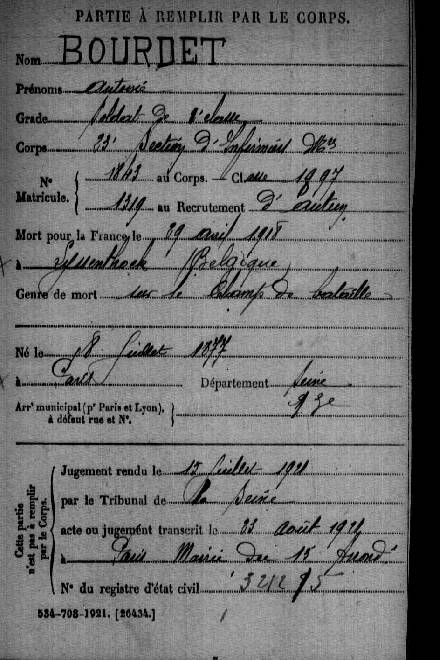 PARTIE À REMPLIR PAR LE CORPS.
Nom BOURDET
Prénoms Antoine
Grade Soldat de 2e classe
Corps 23e Section d'Infirmiers Mres
N° Matricule. { 1843 au Corps. — Classe 1897
1319 au Recrutement d'Autun
Mort pour la France le 29 avril 1918
à (Belgique)
Genre de mort sur le Champ de bataille
Né le 18 Juillet 1877
à Paris Département Seine
Arrt municipal (pr Paris et Lyon), à défaut rue et N°. } 9e
Cette partie n'est pas à remplir par le Corps.
Jugement rendu le Juillet 1921
par le Tribunal de la Seine
acte ou jugement transcrit le 23 août 1921
à Paris Mairie du 15 Arrondt
N° du registre d'état civil
534-708-1921. [26434.]